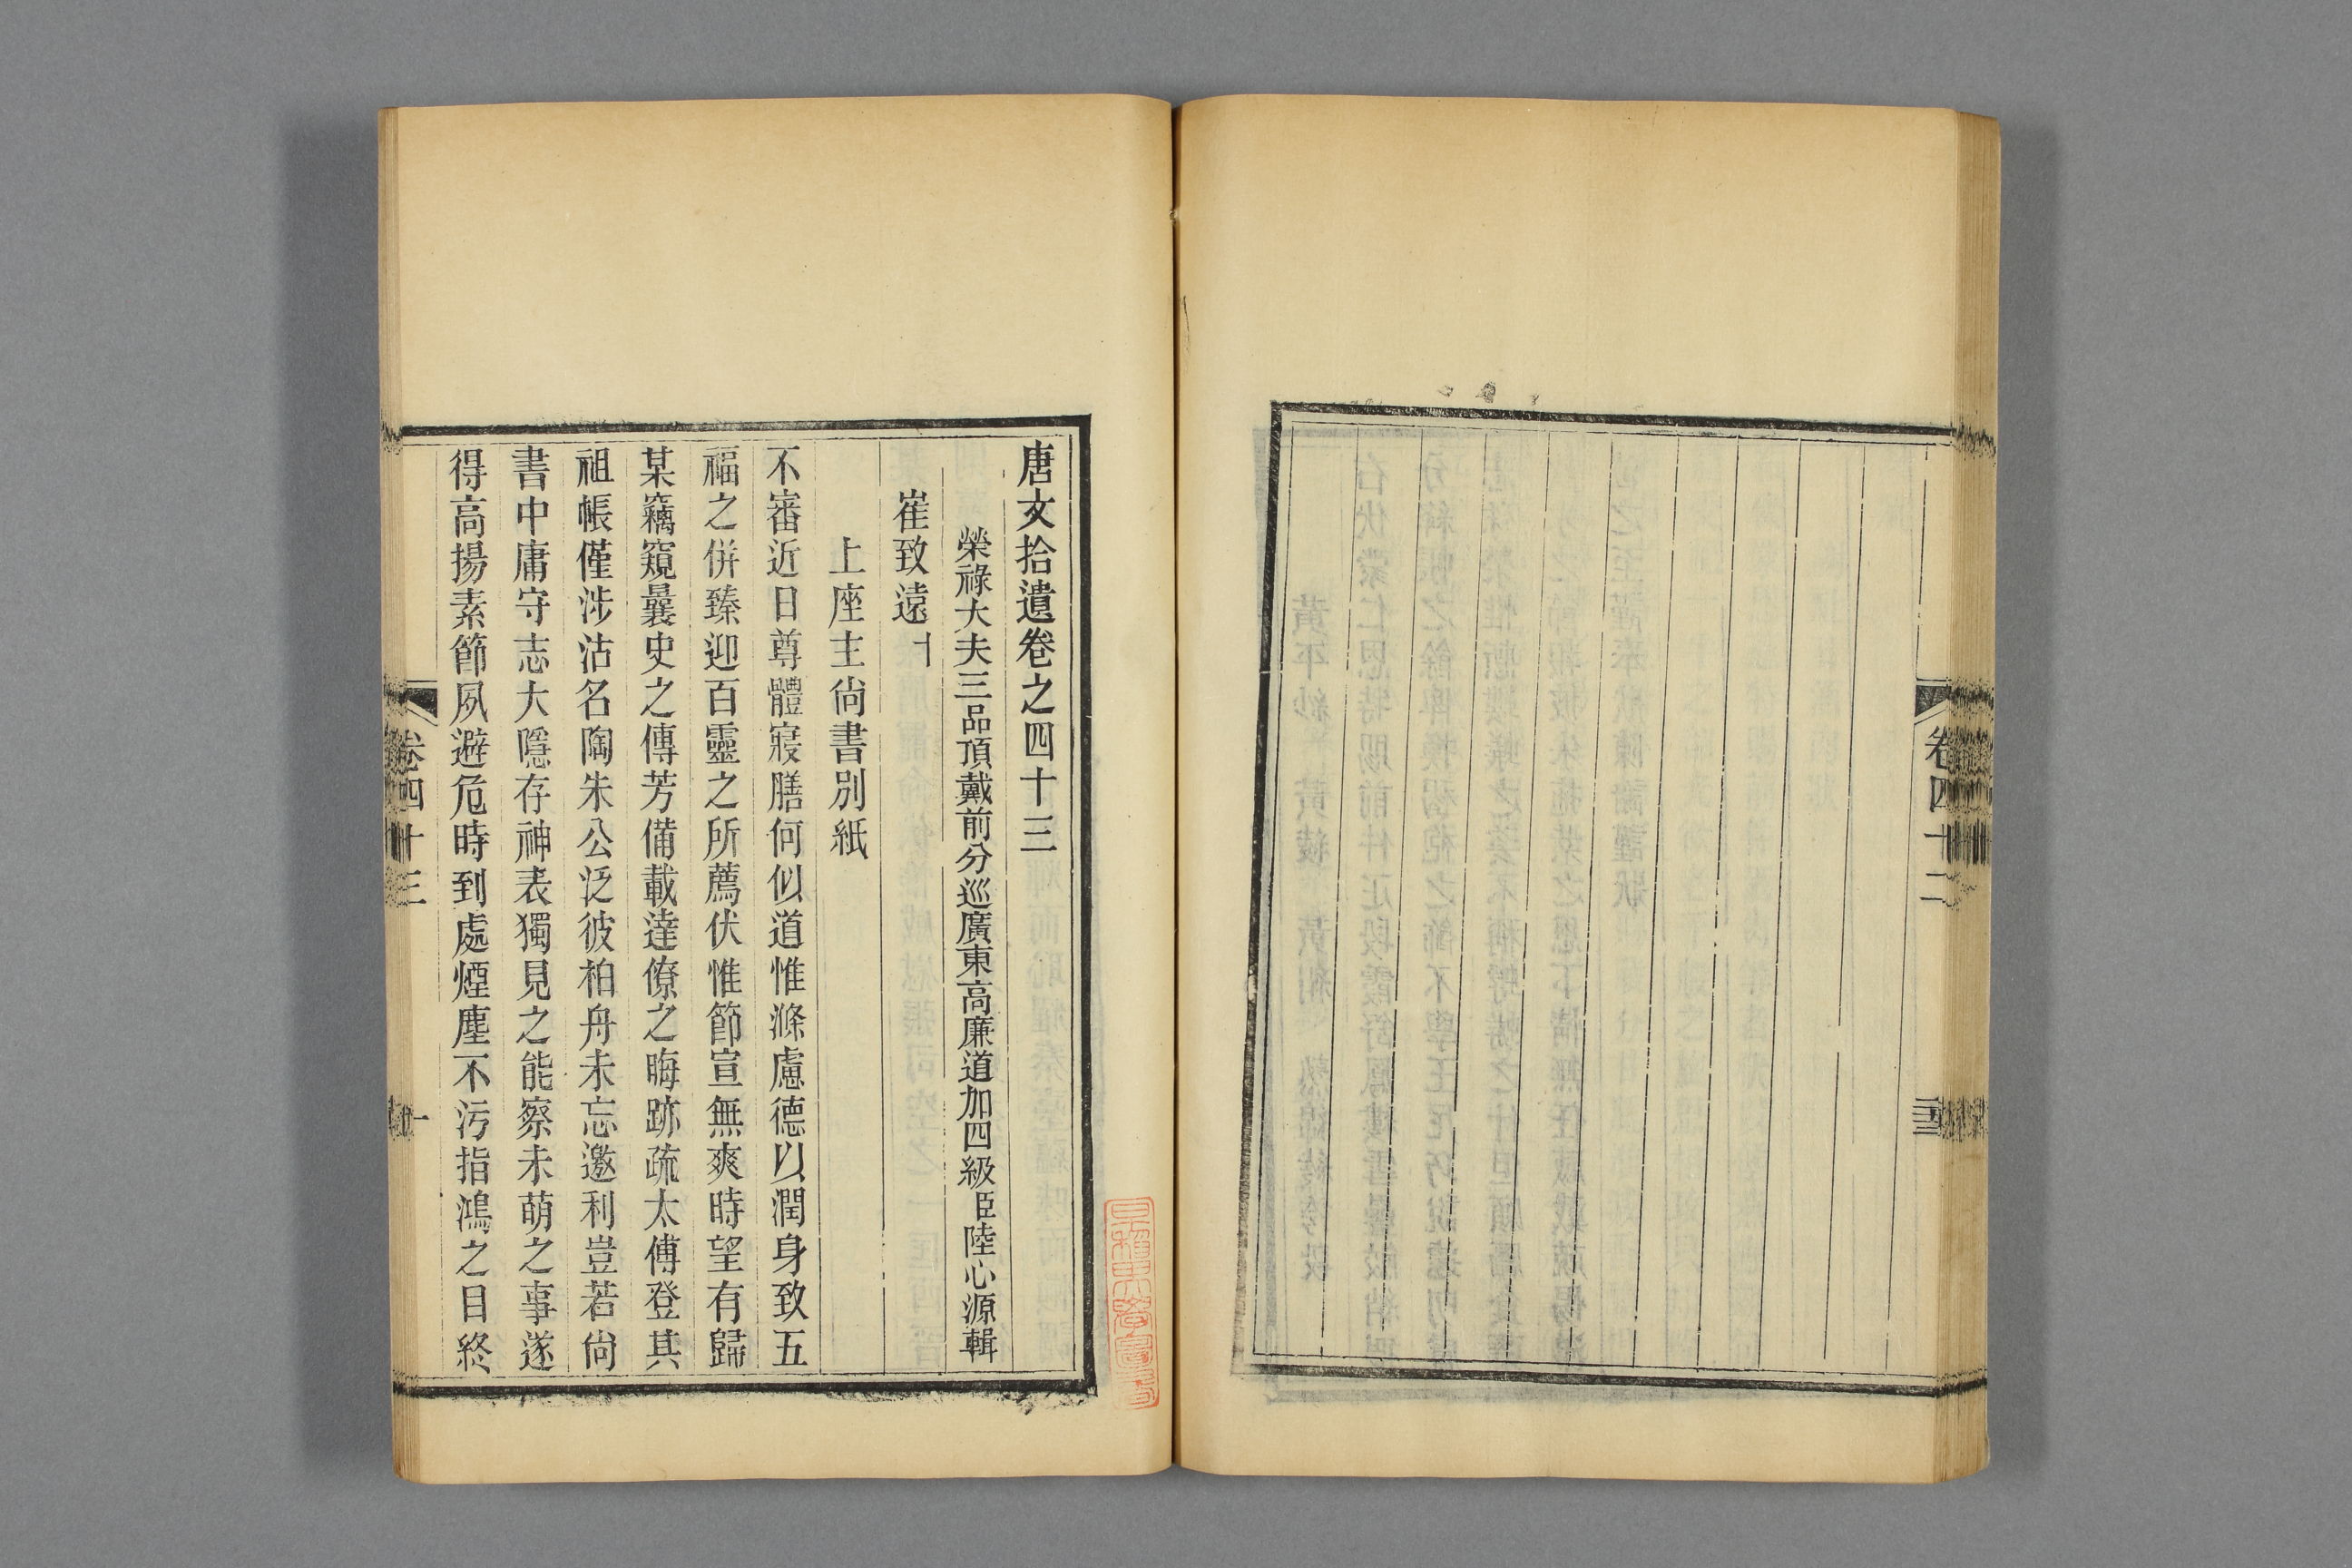 卷四十二
唐文拾遺卷之四十三
榮祿大夫三品頂戴前分巡廣東高廉道加四級臣陸心源輯
崔致遠十
上座主尙書別紙
不審近日尊體寢膳何似道惟滌慮德以潤身致五
福之併臻迎百靈之所薦伏惟節宣無爽時望有歸
某竊窺曩史之傳芳備載達僚之晦跡疏太傅登其
祖帳僅涉沽名陶朱公泛彼柏舟未忘邀利豈若尙
書中庸守志大隱存神表獨見之能察未萌之事遂
得高揚素節夙避危時到處煙塵不污指鴻之目終
卷四十三
一